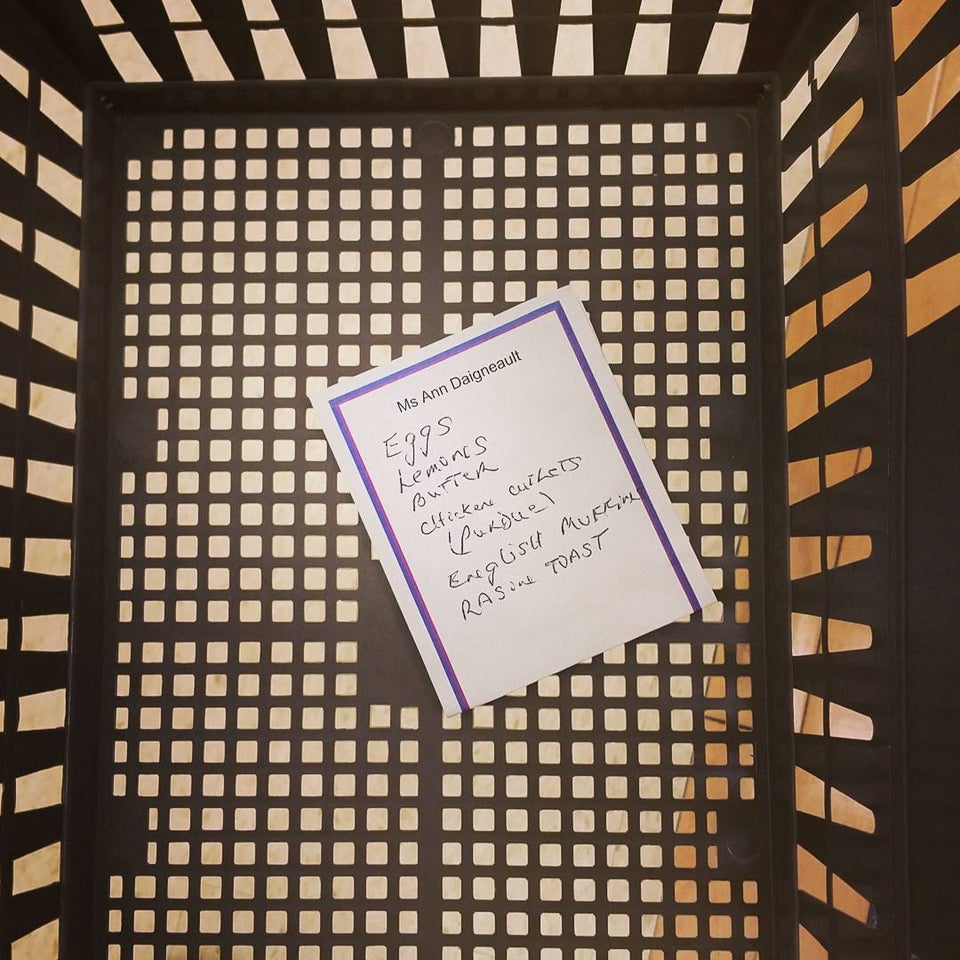 Ms Ann Daigneault
Eggs
Lemons
Butter
Chicken cutlets
(Purdue)
English Muffins
Rasin Toast